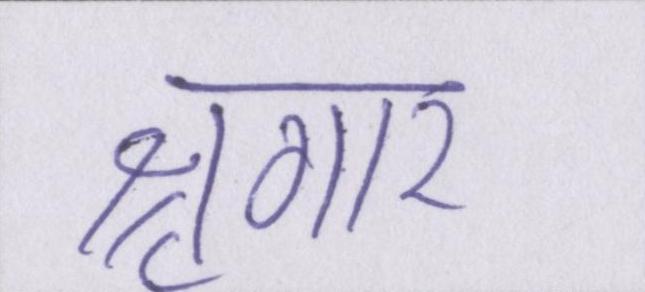 श्रृगार